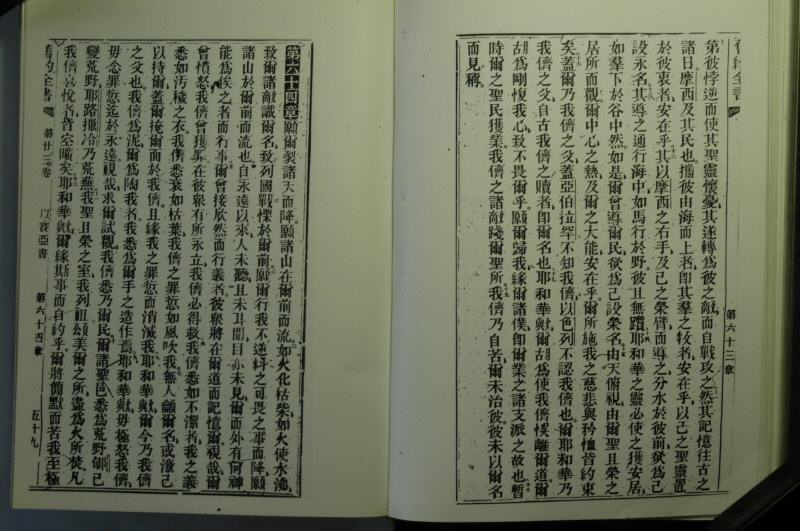 舊約全書
第六十三章
第彼悖逆而使其聖靈懷憂其遂轉為彼之敵而自戰攻之然其記憶往古之
諸日摩西及其民也攜彼由海而上者卽其羣之牧者安在乎以己之聖靈置
於彼衷者安在乎其以摩西之右手及己之榮臂而導之分水於彼前欲為己
設永名其導之通行海中如馬行於野彼且無躓耶和華之靈必使之獲安居
如羣下於谷中然如是爾曾導爾民欲為己設榮名由天俯視由爾聖且榮之
居所而觀爾中心之熱及爾之大能安在乎爾所施我之慈悲與矜恤皆約束
矣蓋爾乃我儕之父蓋亞伯拉罕不知我儕以色列不認我儕也爾耶和華乃
我儕之父自古我儕之贖者卽爾名也耶和華歟爾胡為使我儕悞離爾道爾
胡為剛愎我心致不畏爾乎願爾歸我緣爾諸僕卽爾業之諸支派之故也暫
時爾之聖民獲業我儕之諸敵踐爾聖所我儕乃自苦爾未治彼彼未以爾名
而見稱
第六十四章願爾裂諸天而降願諸山在爾前而流如火化枯柴如火使水沸
致爾諸敵識爾名致列國戰慄於爾前願爾行我不逆料之可畏之事而降願
諸山於爾前而流也自永遠以來人未聽且未耳聞目亦未見爾而外有何神
能為俟之者而行事爾曾接欣然而行義者彼眾將在爾道而記憶爾視哉爾
曾憤怒我儕曾獲罪在彼眾有所永立我儕必得救我儕悉如不潔者我之義
悉如汚穢之衣我儕悉衰如枯葉我儕之罪愆如風吹我無人籲爾名或激己
以持爾蓋爾掩爾面於我儕且緣我之罪愆而消滅我耶和華歟爾今乃我儕
之父也我儕為泥爾為陶我者我悉為爾手之造作焉耶和華歟毋極怒我儕
毋念罪愆迄於永遠視哉求爾試觀我儕悉乃爾民爾諸聖邑悉為荒野郇已
變荒野耶路撒冷乃荒蕪我聖且榮之室我列祖頌美爾之所盡為火所焚凡
我儕喜悅者皆空曠矣耶和華歟爾緣斯事而自約乎爾將簡默而苦我至極
舊約全書
第廿三卷
以賽亞書
第六十四章
五十九